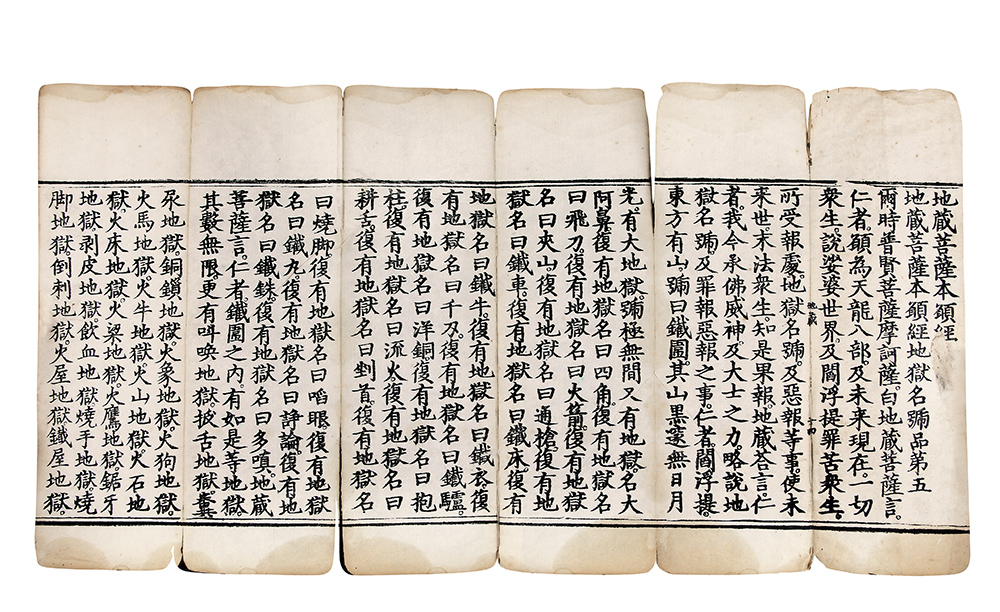 地藏菩薩本願經
地藏菩薩本願經地獄名號品第五
爾時普賢菩薩摩訶薩。白地藏菩薩言。
仁者。願為天龍八部及未來現在。一切
衆生。說娑婆世界。及閻浮提罪苦衆生。
地藏 十四
所受報處。地獄名號。及惡報。等事。使未
來世。末法衆生。知是果報。地藏答言。仁
者。我今承佛威神。及大士之力。略說地
獄名號。及罪報惡報之事。仁者。閻浮提。
東方有山。號曰鐵圍。其山黑邃。無日月
光。有大地獄。號極無間。又有地獄。名大
阿鼻。復有地獄。名曰四角。復有地獄。名
曰飛刀。復有地獄。名曰火箭。復有地獄
名曰夾山。復有地獄。名曰通槍。復有地
獄名曰鐵車。復有地獄。名曰鐵床。復有
地獄。名曰鐵牛。復有地獄。名曰鐵衣。復
有地獄。名曰千刃。復有地獄。名曰鐵驢。
復有地獄。名曰洋銅。復有地獄。名曰抱
柱。復有地獄。名曰流火。復有地獄。名曰
耕舌。復有地獄。名曰剉首。復有地獄。名
曰燒脚。復有地獄。名曰啗眼。復有地獄
名曰鐵丸。復有地獄。名曰諍論。復有地
獄。名曰鐵銖。復有地獄。名曰多嗔。地藏
菩薩言。仁者。鐵圍之內。有如是等地獄。
其數無限。更有呌喚地獄。拔舌地獄。糞
尿地獄。銅鎖地獄。火象地獄。火狗地獄。
火馬地獄。火牛地獄。火山地獄。火石地
獄。火床地獄。火梁地獄。火鷹地獄。鋸牙
地獄。剥皮地獄。飲血地獄。燒手地獄。燒
脚地獄。倒刺地獄。火屋地獄。鐵屋地獄。